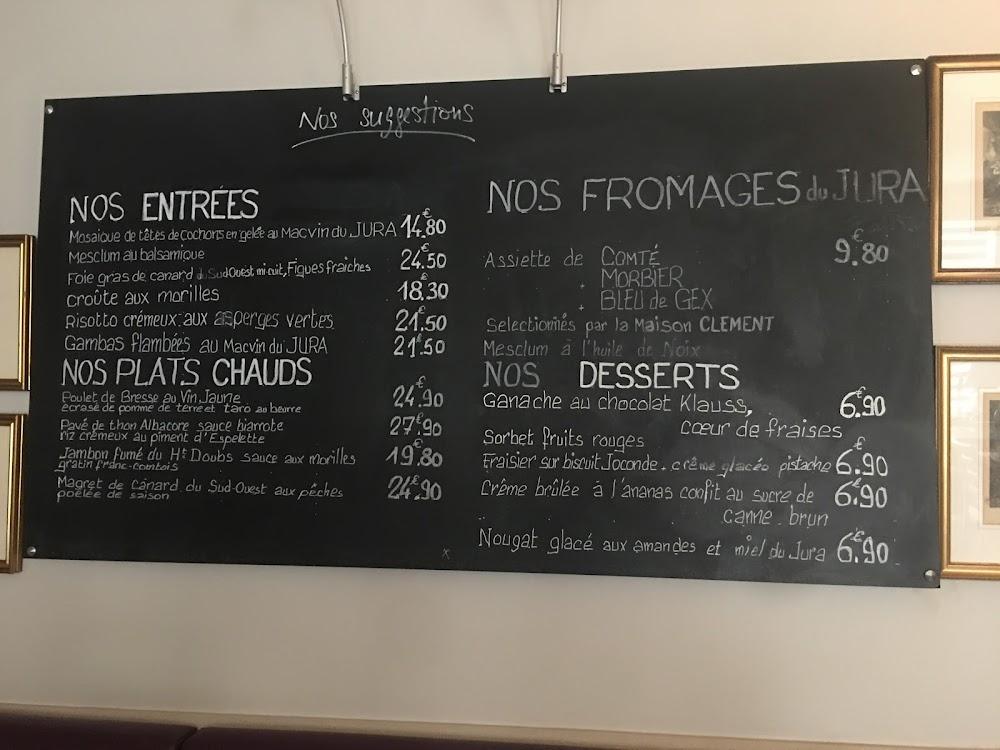 Nos suggestions
NOS ENTRÉES
Mosaique de têtes de cochons en gelée au Macvin du JURA 14€.80
Mesclum au balsamique
Foie gras de canard du Sud Ouest mi-cuit, Figues fraiches 24€.50
croûte aux morilles 18€.30
Risotto crémeux aux asperges vertes 21€.50
Gambas flambées au Macvin du JURA 21€.50
NOS PLATS CHAUDS
Poulet de Bresse au Vin Jaune 24€.90
écrasé de pomme de terre et taro au beurre
Pavé de thon Albacore sauce hiarrote 27€.90
riz crémeux au piment d'Espelette
Jambon fumé du Ht Doubs sauce aux morilles 19€.80
gratin franc-comtois
Magret de canard du Sud-Ouest aux pêches 24€.90
poêlée de saison
x
NOS FROMAGES du JURA
Assiette de COMTÉ 9€.80
. MORBIER
. BLEU de GEX
Selectionnés par la Maison CLEMENT
Mesclum à l'huile de Noix
NOS DESSERTS
Ganache au chocolat Klauss, 6€.90
cœur de fraises
Sorbet fruits rouges
Fraisier sur biscuit Joconde. crème glacée pistache 6€.90
Crème brûlée à l'ananas confit au sucre de 6€.90
canne brun
Nougat glacé aux amandes et miel du Jura 6€.90